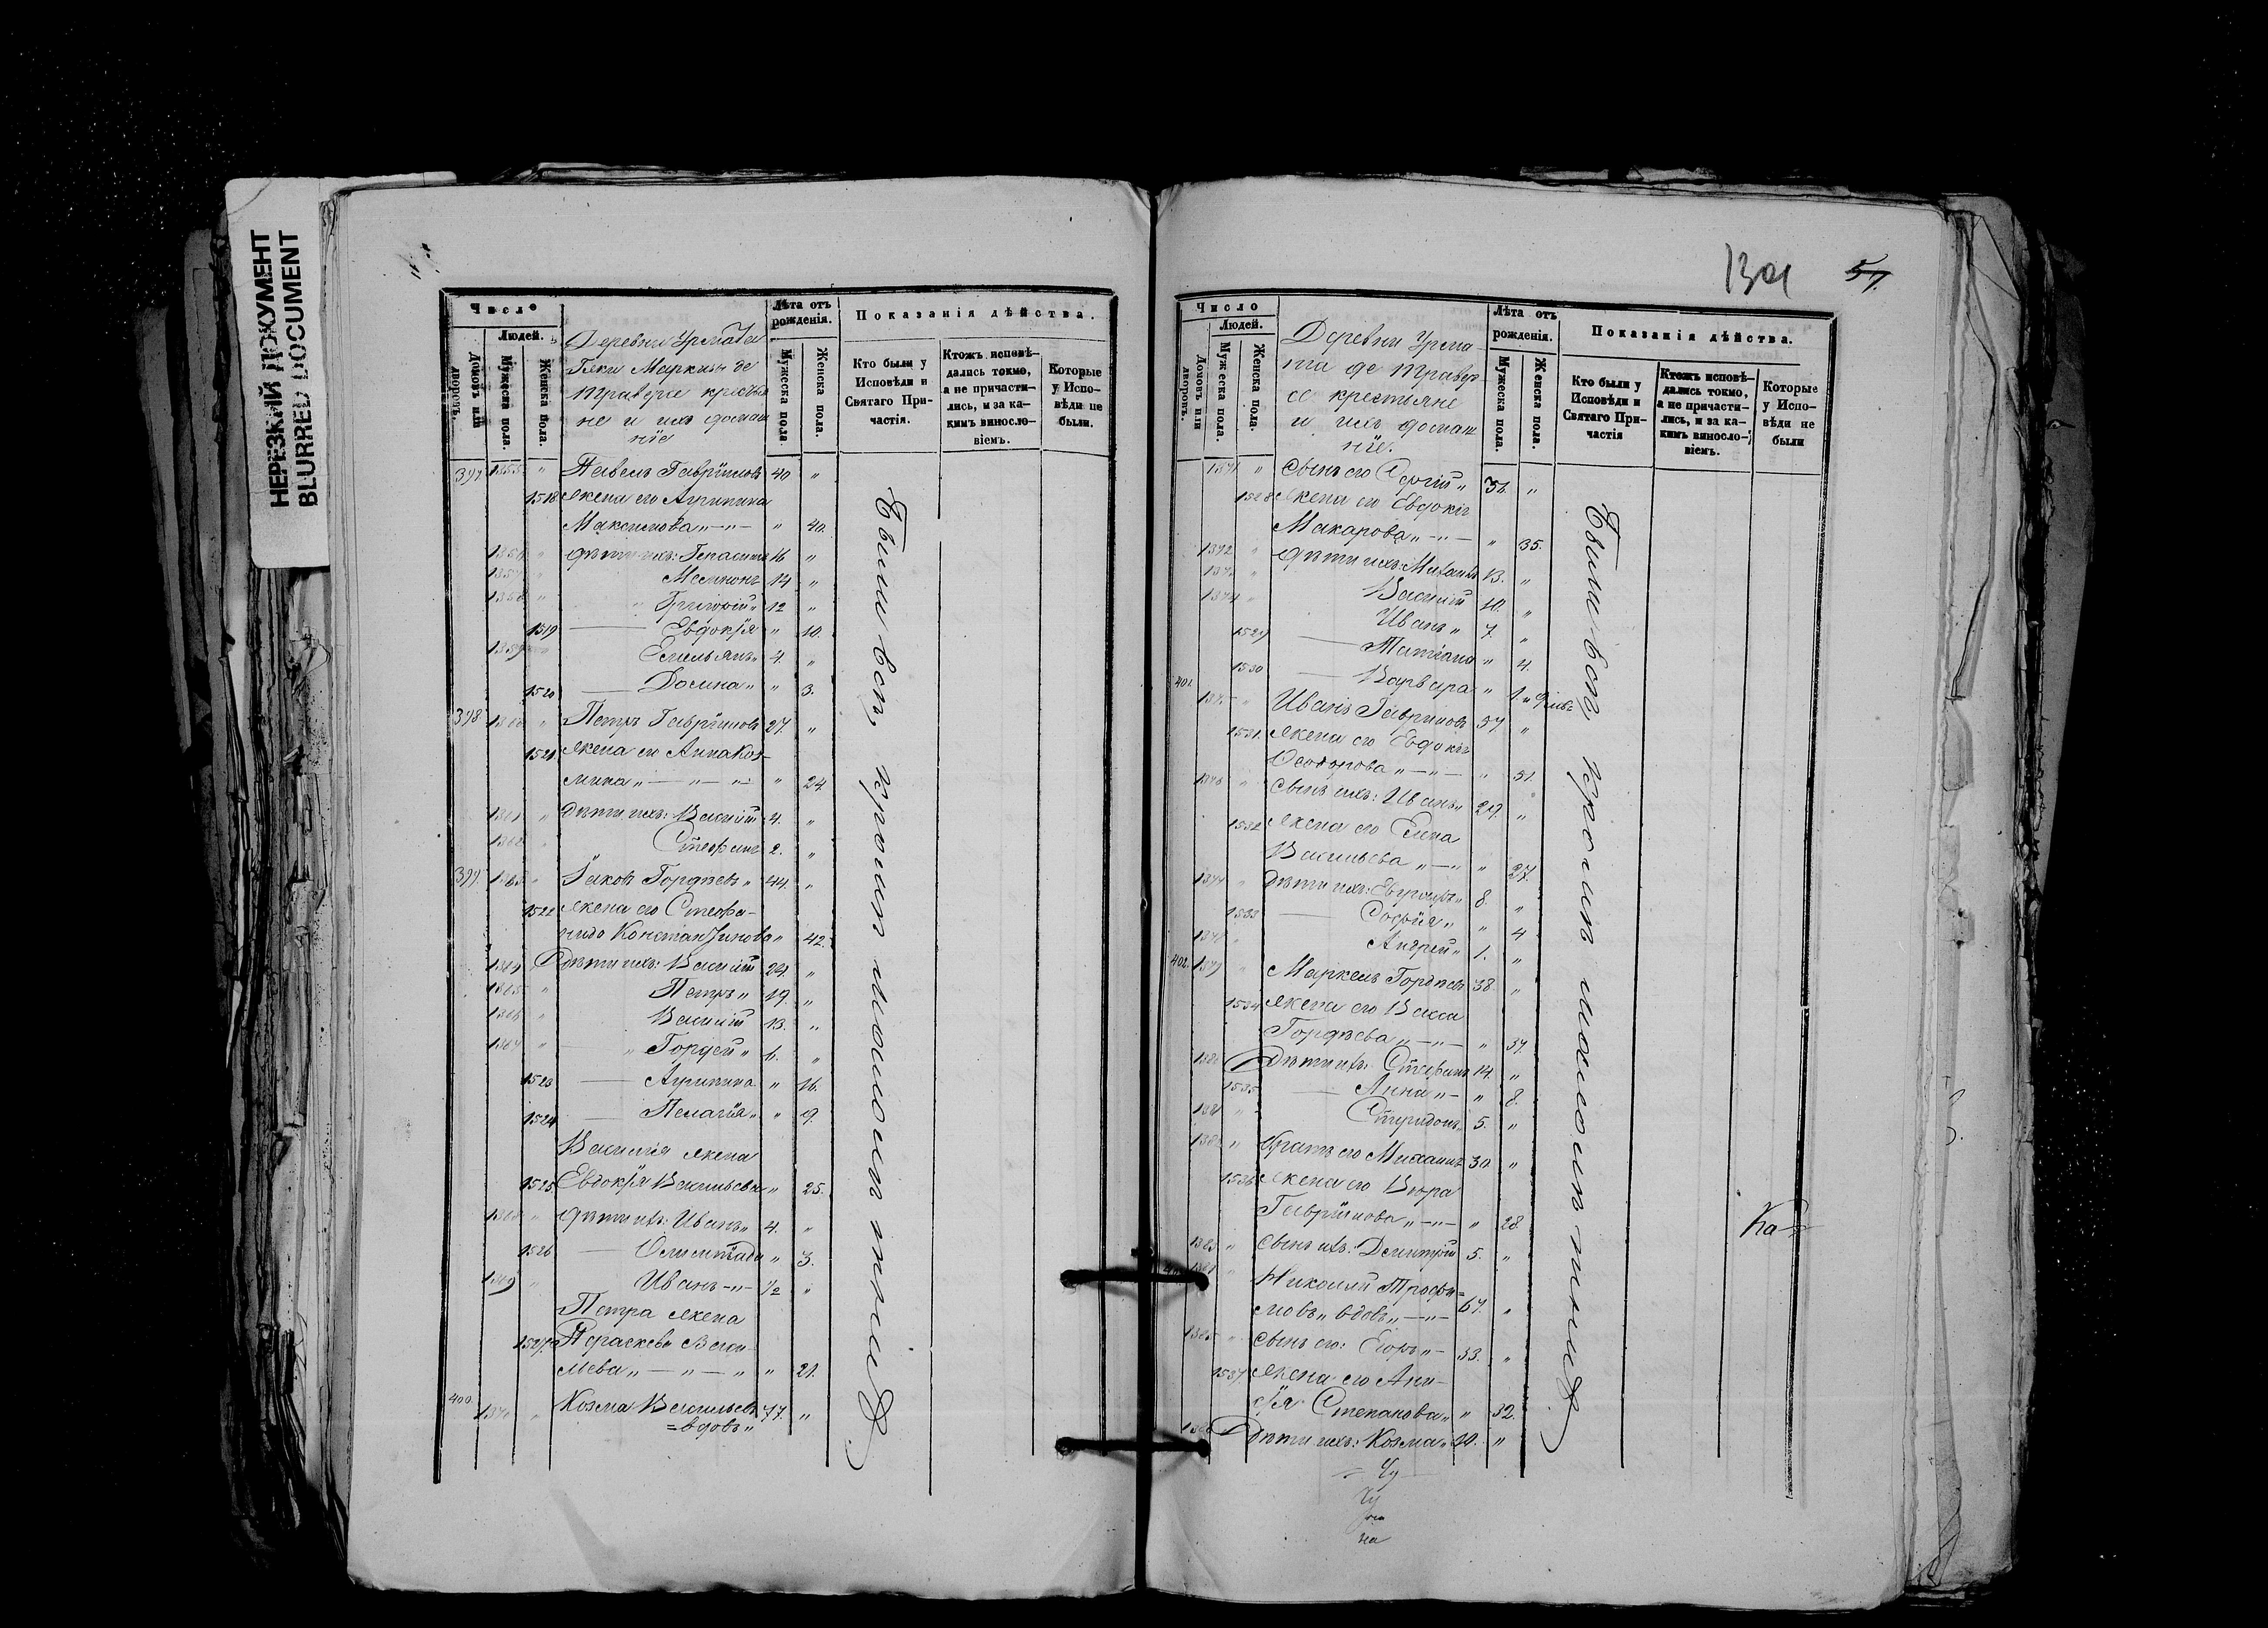 НЕРЕЗКИЙ ДОКУМЕНТ
BLURRED DOCUMENT
Число
Людей.
Домовъ или дворовъ.
Мужеска пола.
Женска пола.
Деревни
Маркизы де
Траверсе крестья
не и ихъ домаш
ніе
Лѣта отъ рожденія.
Мужеска пола.
Женска пола.
Показанія дѣйства.
Кто были у Исповѣди и Святаго Причастія.
Ктожъ исповѣдались токмо, а не причастились, и за какимъ винословіемъ.
Которые у Исповѣди не были.
397 1355 " Павелъ Гавріиловъ 40 "
1518 Жена его Агрипина
Максимова " — " — " 40.
1356 " Дѣти ихъ: Герасимъ 16 "
1357 " 14 "
1358 " Григорій " 12 "
1519 — Евдокія " 10.
1359 " Емельянъ " 4. "
1520 — Домна " " 3.
398 1360 " Петръ Гавріиловъ 27. "
1521 Жена его Анна Коз-
мина " — " — " — " 24.
1361 " Дѣти ихъ: Василій 4. "
1362 " Стефанъ 2. "
399. 1363 " Іаковъ Гордѣевъ " 44. "
1522 Жена его Стефа-
нида Константинова " 42.
1364 Дѣти ихъ: Василій 24. "
1365 " Петръ " 19. "
1366 " Василій 13. "
1367 " " Гордей " 6. "
1523 — Агрипина " 16.
1524 — Пелагія " " 9.
Василія жена
1525 Евдокія Васильева " 25.
1368 " Дѣти ихъ: Иванъ " 4. "
1526 — Олимпіада " 3.
1369 " Иванъ — " — 1/2 "
Петра жена
1527. Параскева Васи-
льева " — " — " " 21.
400 1370 " Козма Васильевъ 77. "
= вдовъ "
Были всѣ, кромѣ малолѣтныхъ
57.
Число
Людей.
Домовъ или дворовъ.
Мужеска пола.
Женска пола.
Деревни
де Травер-
се крестьяне
и ихъ домаш
ніе.
Лѣта отъ рожденія.
Мужеска пола.
Женска пола.
Показанія дѣйства.
Кто были у Исповѣди и Святаго Причастія
Ктожъ исповѣдались токмо, а не причастились, и за какимъ винословіемъ.
Которые у Исповѣди не были
1371 " Сынъ его "
1528 Жена его Евдокія
Макарова " — " — " 35.
1372 " Дѣти ихъ: 13. "
1373 " Василій 10. "
1374 " Иванъ " 7. "
1529 — Татіана " 4.
1530 — Варвара " 1.
401 1375 " Иванъ Гавриловъ 57 "
1531. Жена его Евдокія
Ѳеодорова " — " — " 51.
1376 " Сынъ ихъ: Иванъ " 29. "
1532 Жена его Елена
Васильева " — " " 27.
1377 " Дѣти ихъ: 8. "
1533 — Софія " " 4
1378 " Андрей " 1. "
402. 1379 " Маркелъ Гордѣевъ 38 "
1534 Жена его Васса
Гордѣева " — " — " 37.
1380 Дѣти ихъ: Стефанъ 14. "
1535 — Анна " — " 8.
1381 " Спиридонъ 5. "
1382 " Братъ его Михаилъ 30 "
1536 Жена его
Гавріилова " — " — " 28.
1383 " Сынъ ихъ: Димитрій 5. "
1384 " Николай Трофи=
мовъ " вдовъ " — " — 67. "
1385 " Сынъ его: Егоръ " — 33. "
1537 Жена его Ани-
сія Степанова " " 32.
1386 Дѣти ихъ: Козма " 10. "
Были всѣ, кромѣ малолѣтныхъ
Ка